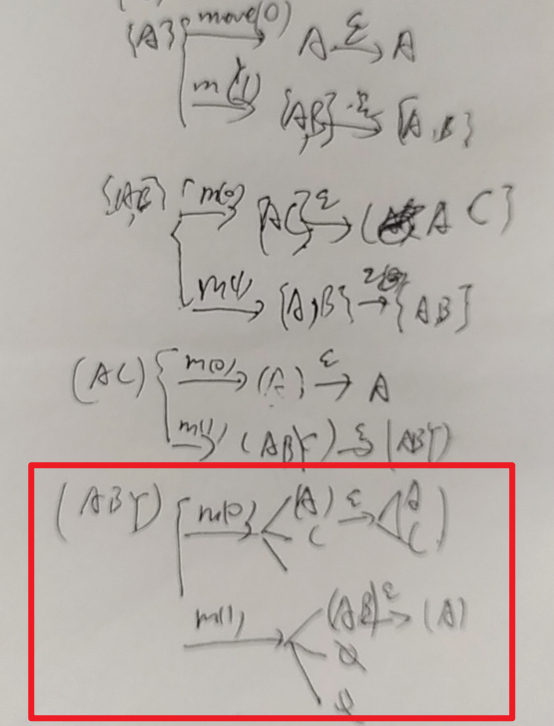 {A} move(0) A ε A
m(1) {A,B} ε {A,B}
{A,B} m(0) {A C} ε ( A C}
m(1) {A,B} → {A B}
(A C) m(0) (A) ε A
m(1) (A B Y) ε (A B Y)
(A B Y) m(0) (A) ε A
C C
m(1) (A B) ε (A)
φ
φ